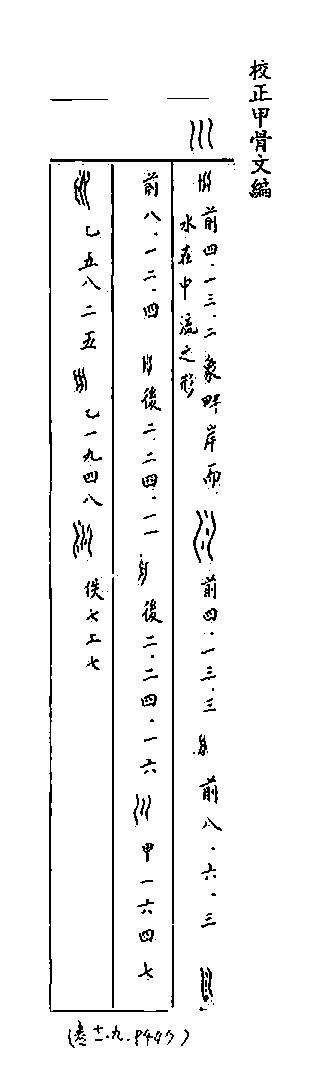 校正甲骨文編
巛
前四·一三·二 象畔岸而水在中流之形 前四·一三·三 前八·六·三
前八·一二·四 後二·二四·一一 後二·二四·一六 甲一六四七
乙五八二五 乙一九四八 佚七二七